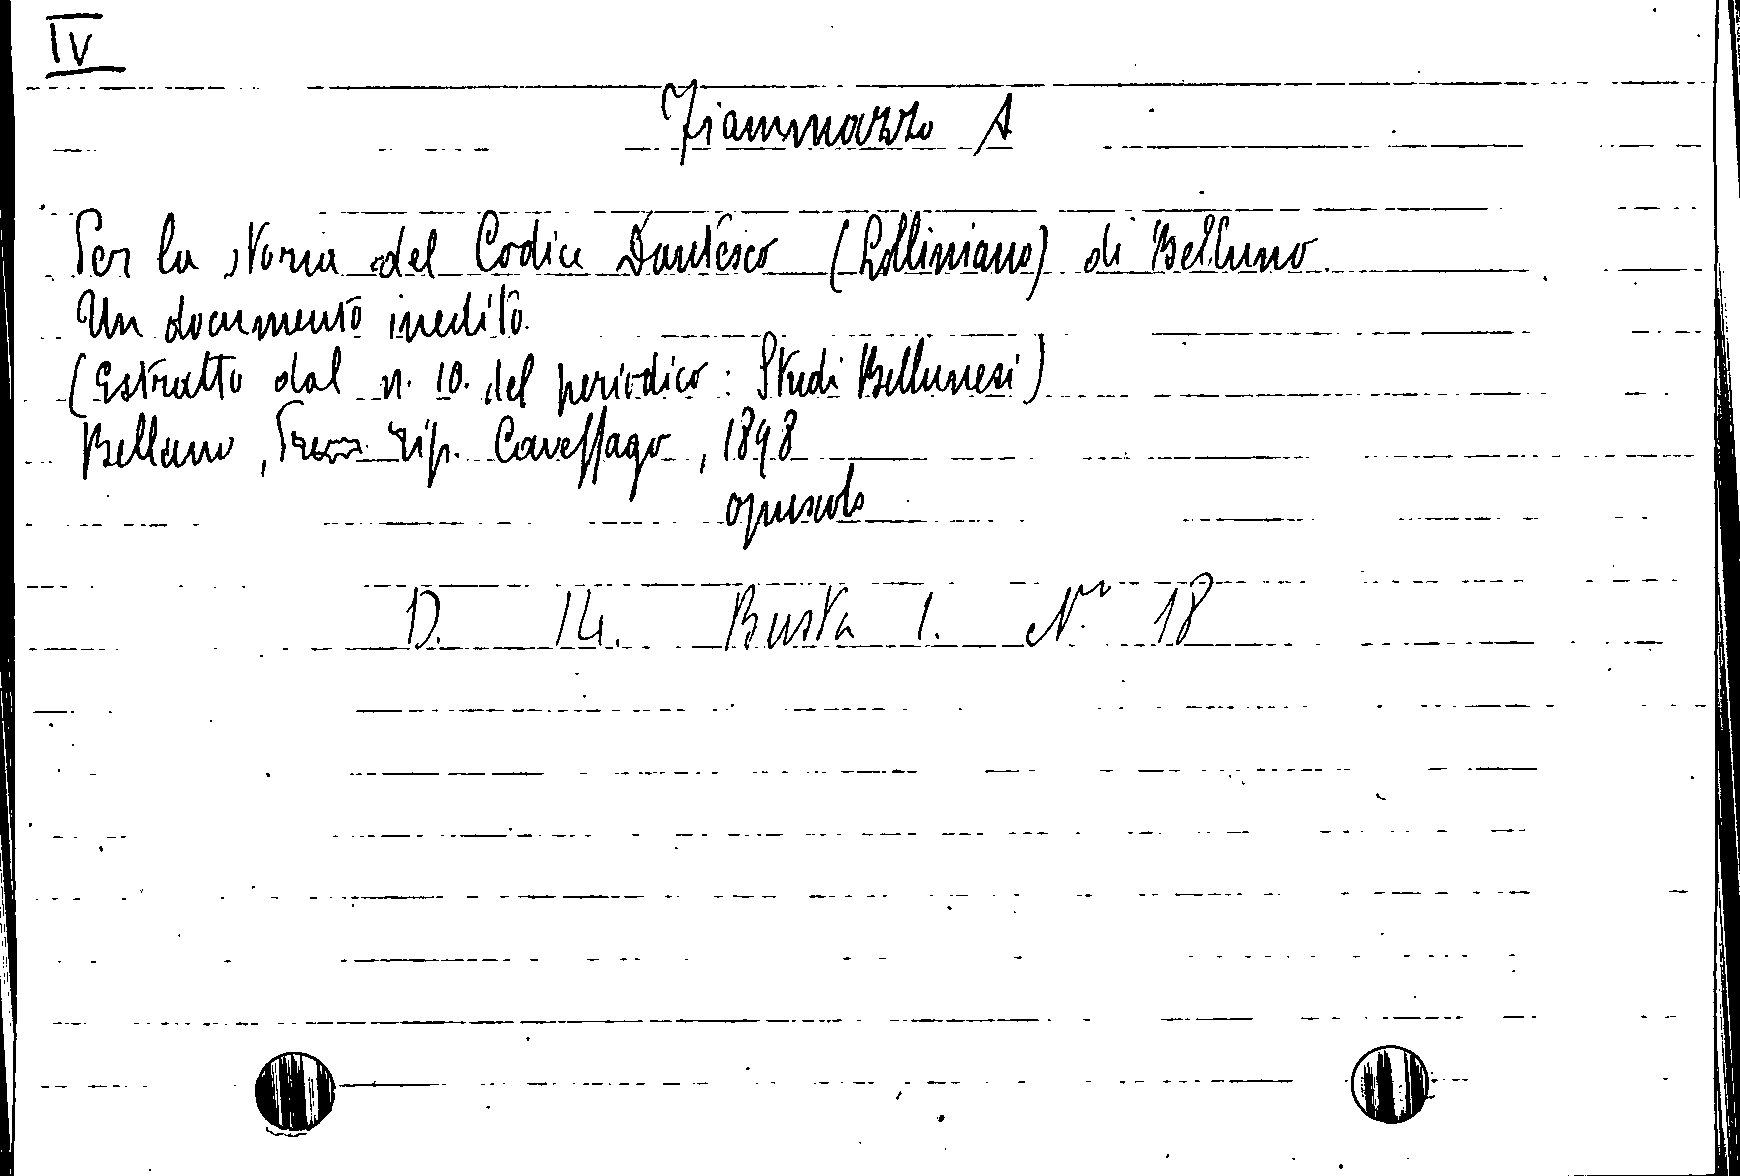 IV
Fiammazzo A
Per la storia del Codice Dantesco (Lolliniano) di Belluno.
Un documento inedito.
(Estratto dal n. 10. del periodico: Studi Bellunesi)
Belluno, Tip. Cavessago, 1898
opuscolo
D. 14. Busta 1. N° 18